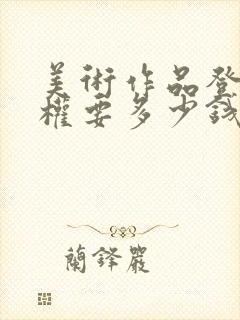 美術作品登
權要多少錢
蘭鋒嚴